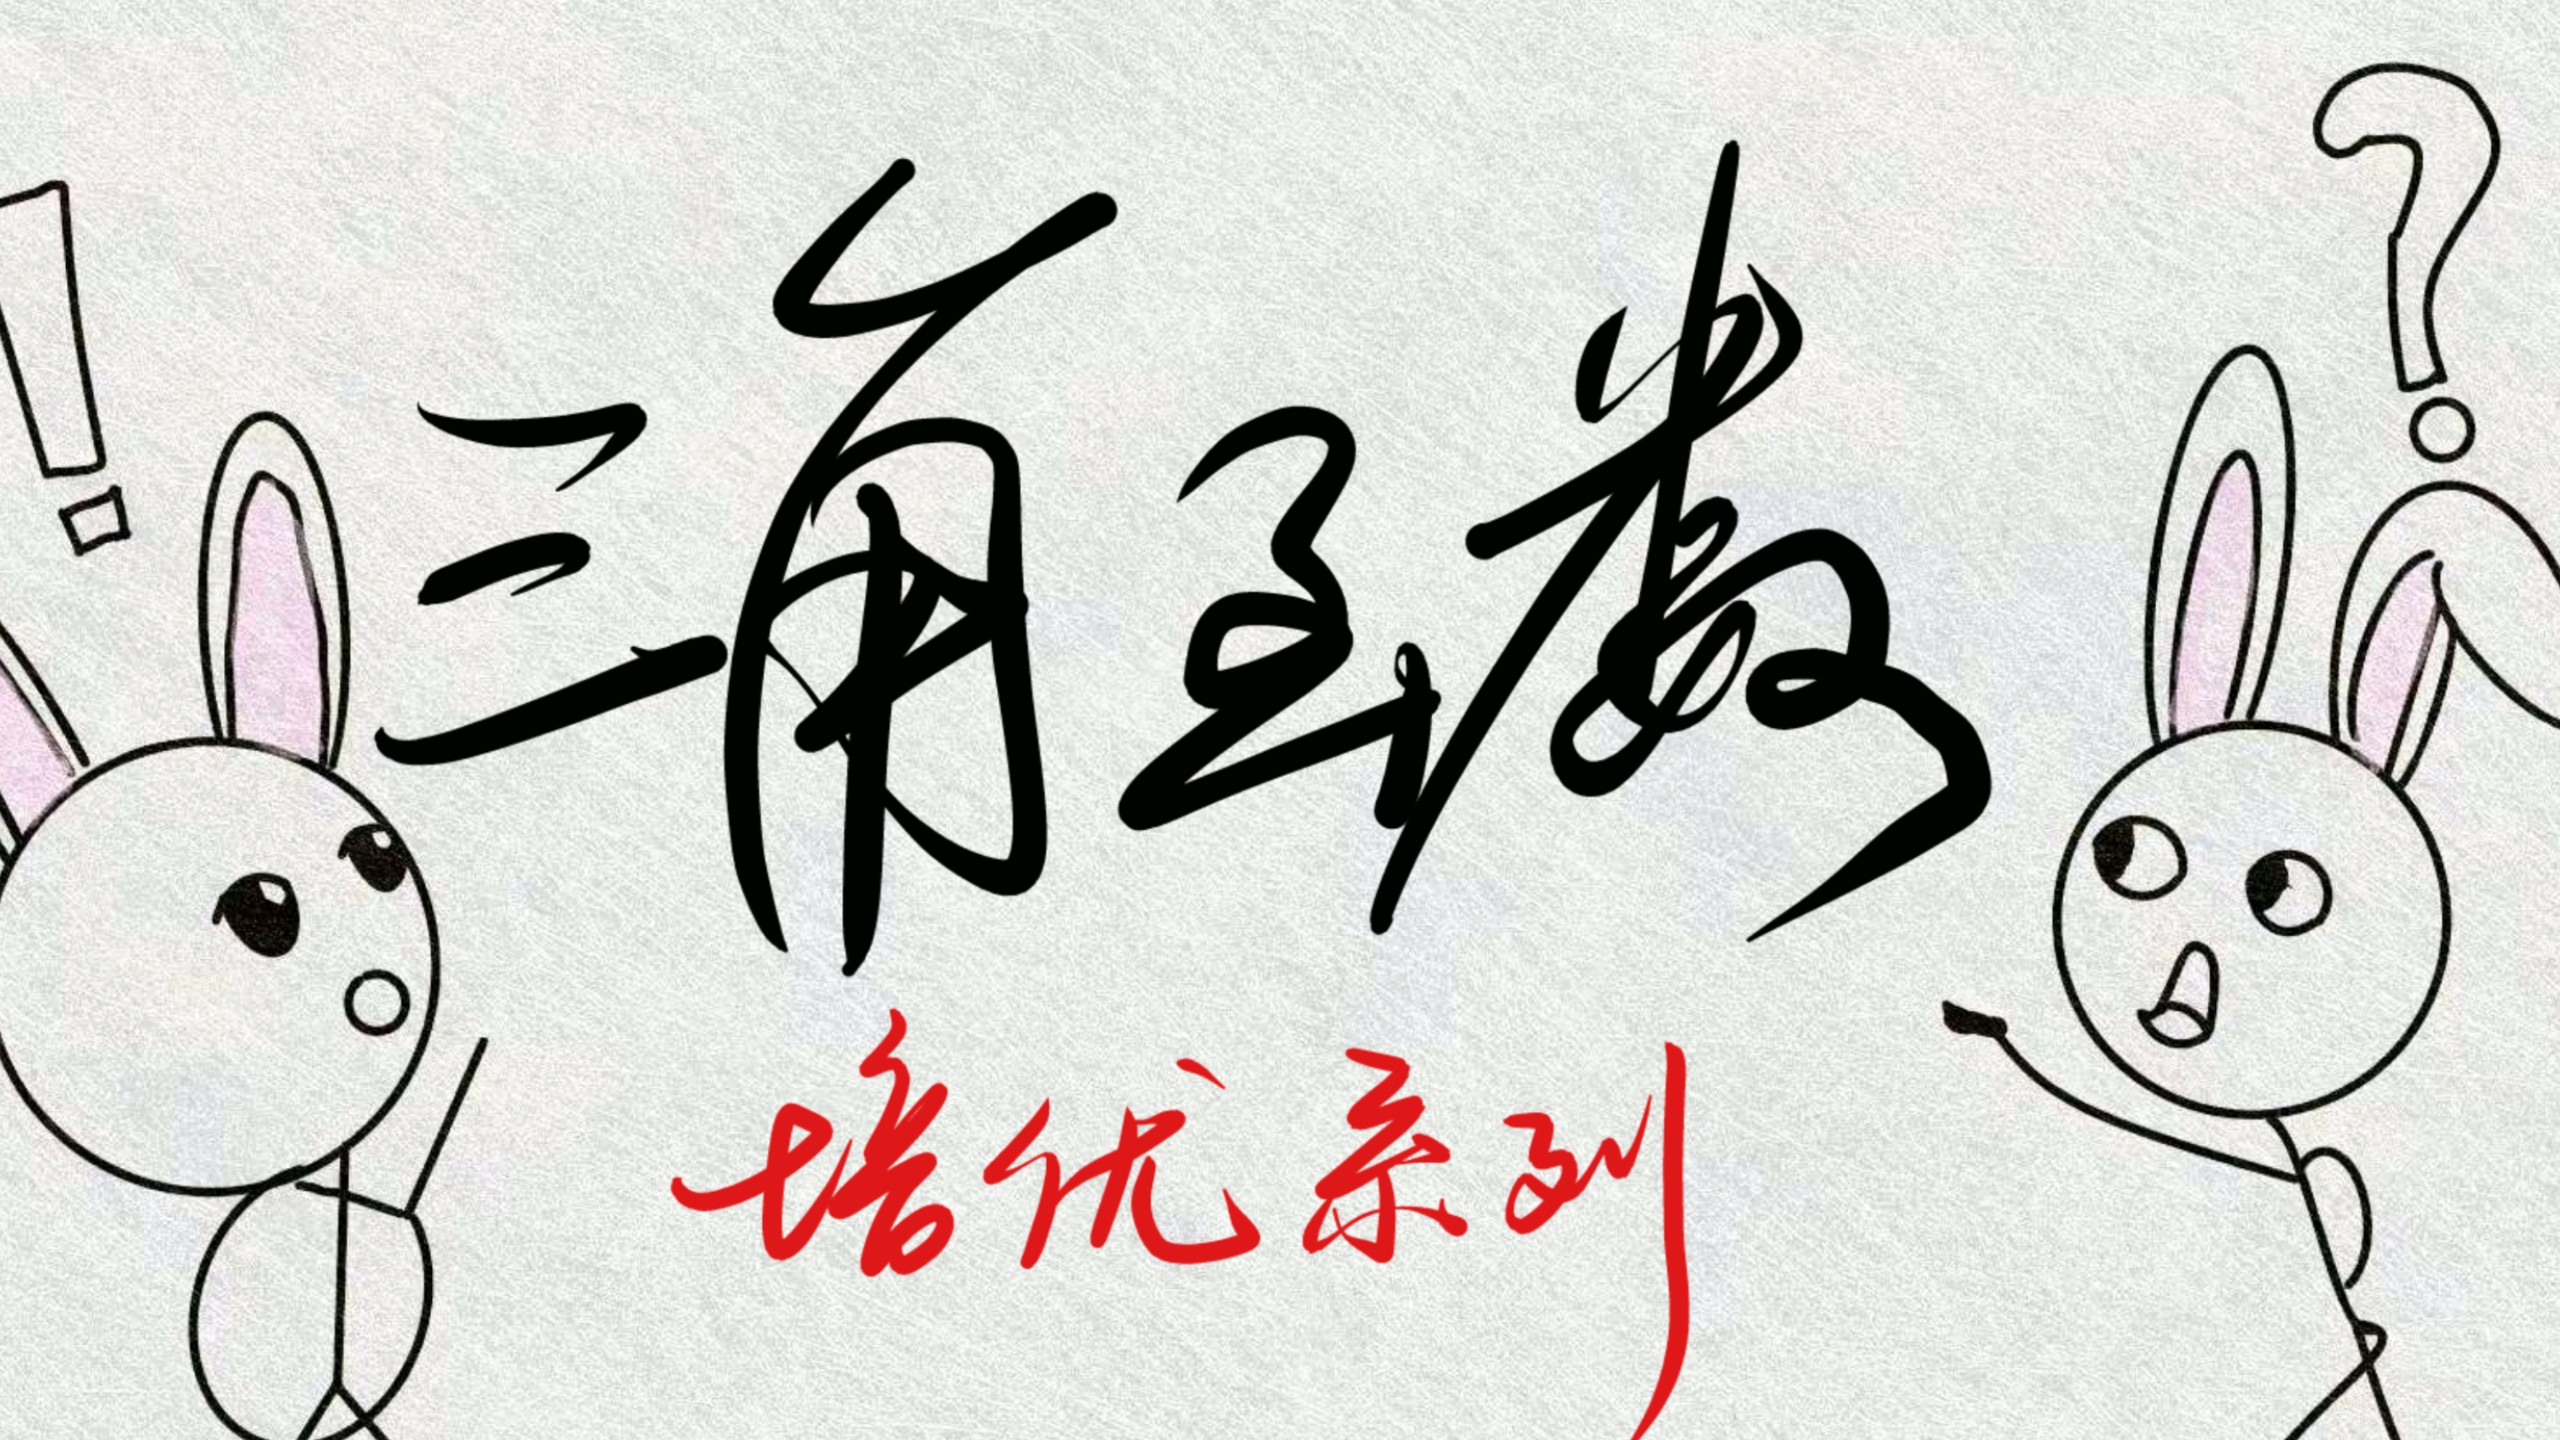 三角函数
培优系列
！
？